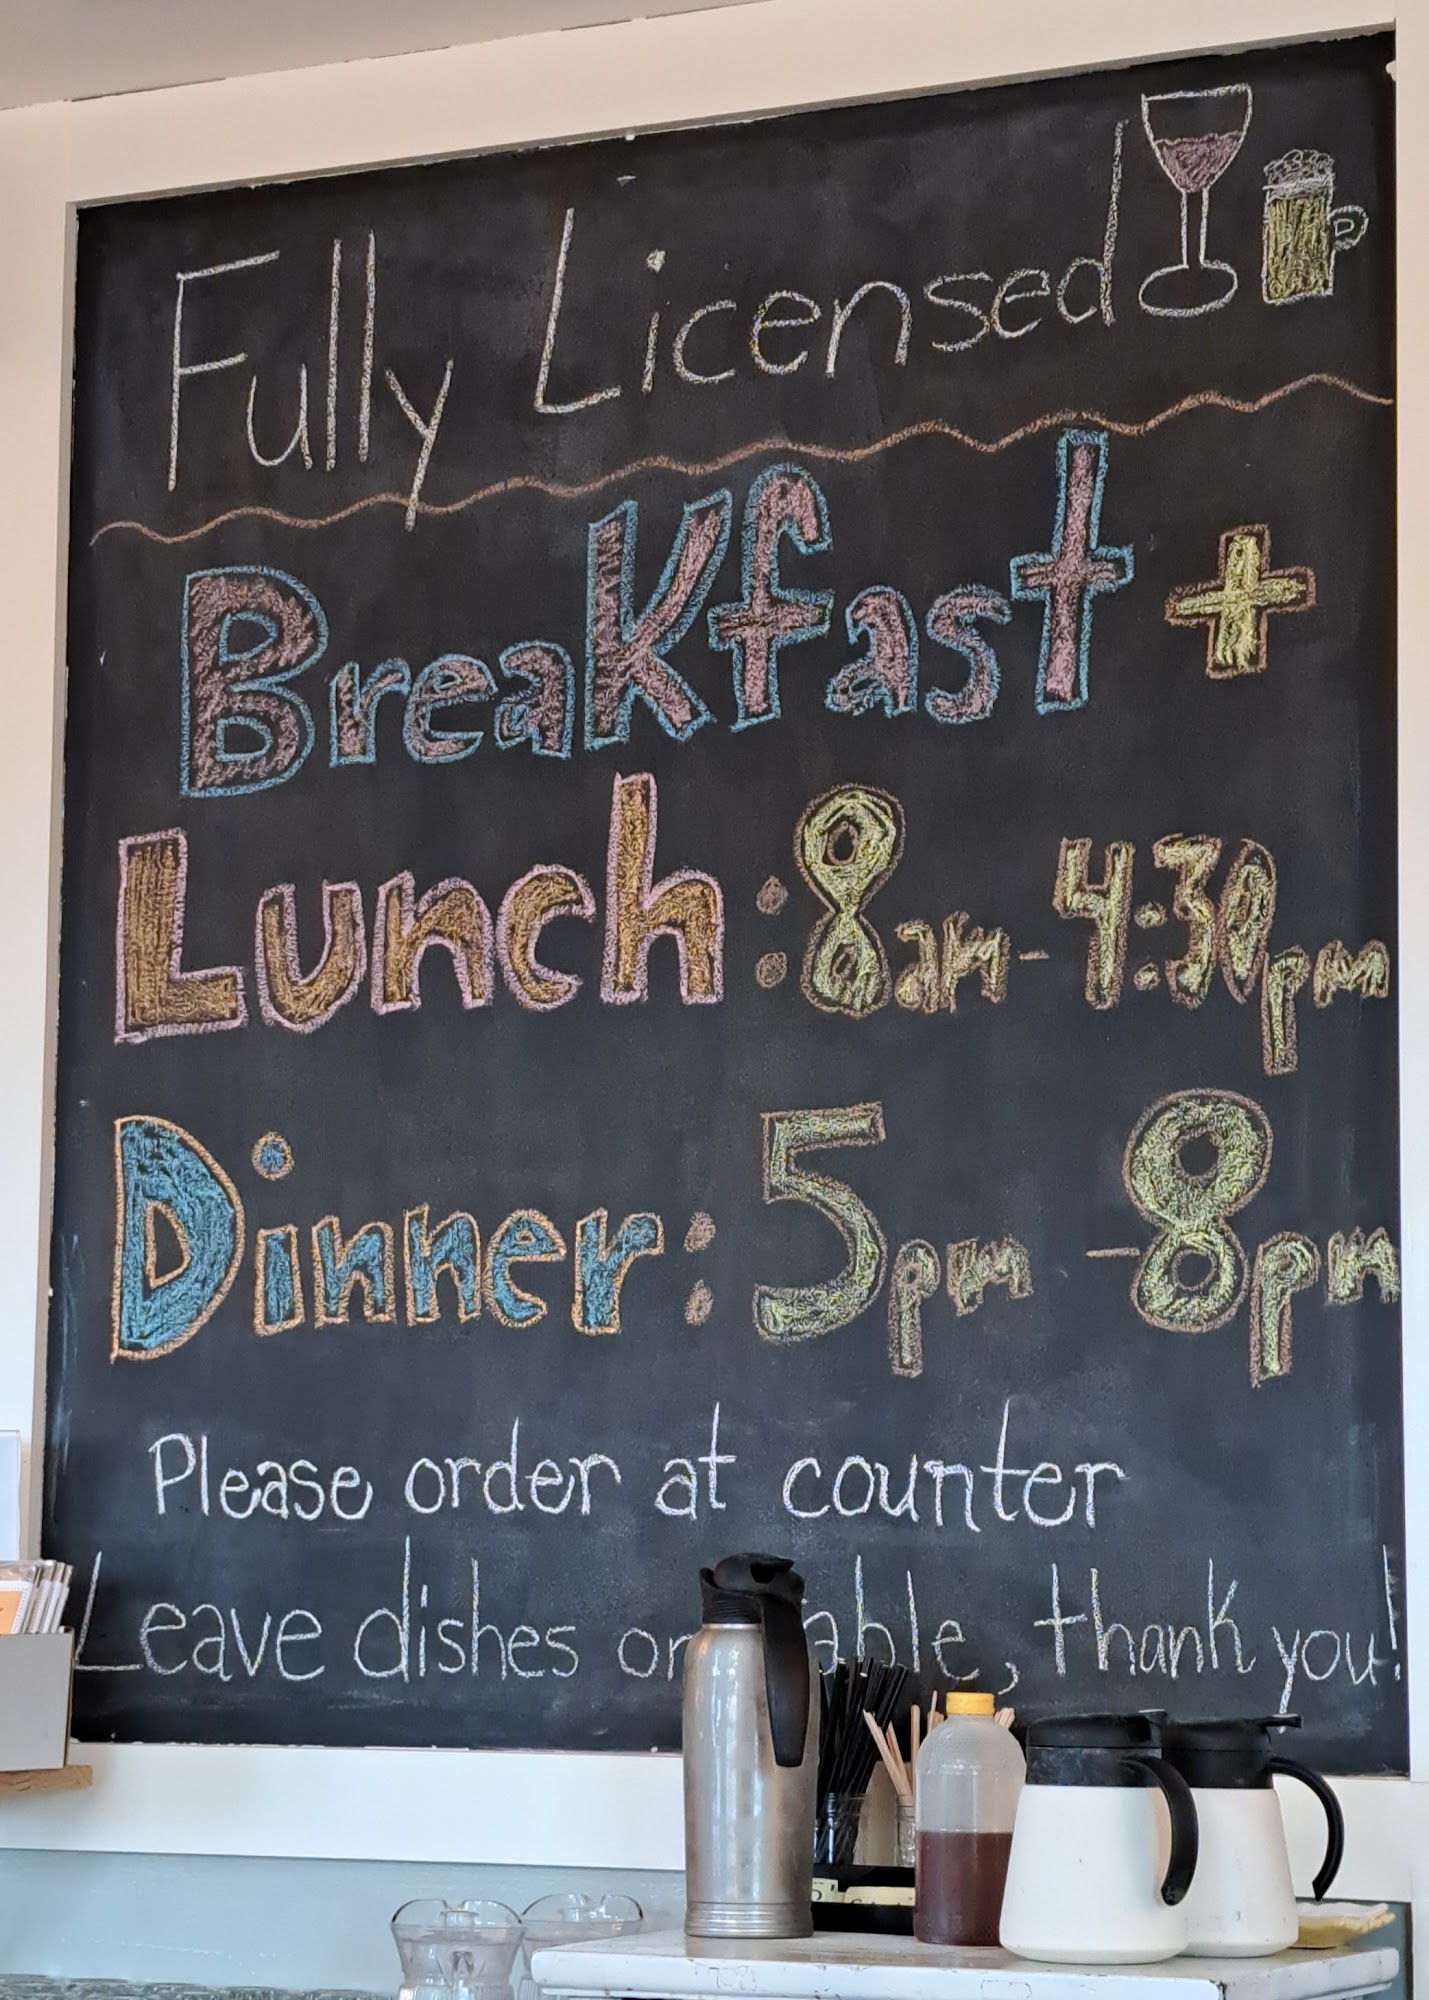 Fully Licensed
Breakfast +
Lunch: 8am - 4:30pm
Dinner: 5pm - 8pm
Please order at counter
Leave dishes on table, thank you!